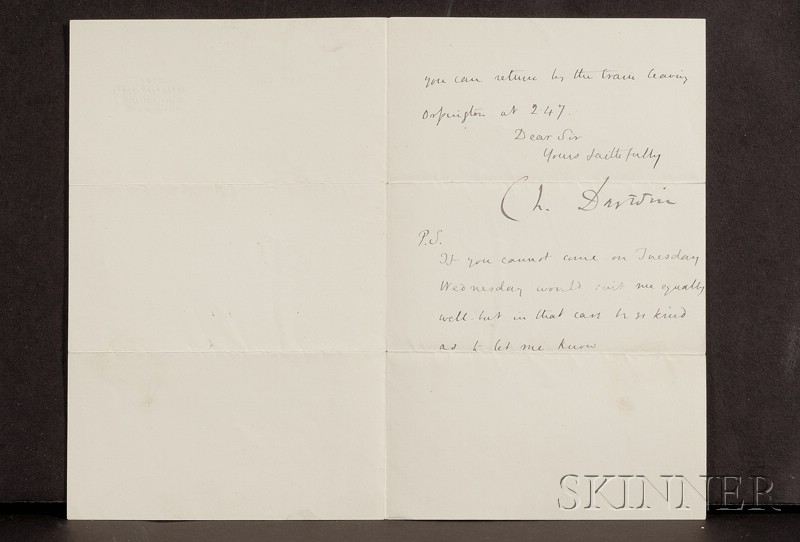 you can return by the train leaving
Orpington at 2 47.
Dear Sir
Yours faithfully
Ch. Darwin
P.S.
If you cannot come on Tuesday
Wednesday would suit me equally
well but in that case be so kind
as to let me know
SKINNER